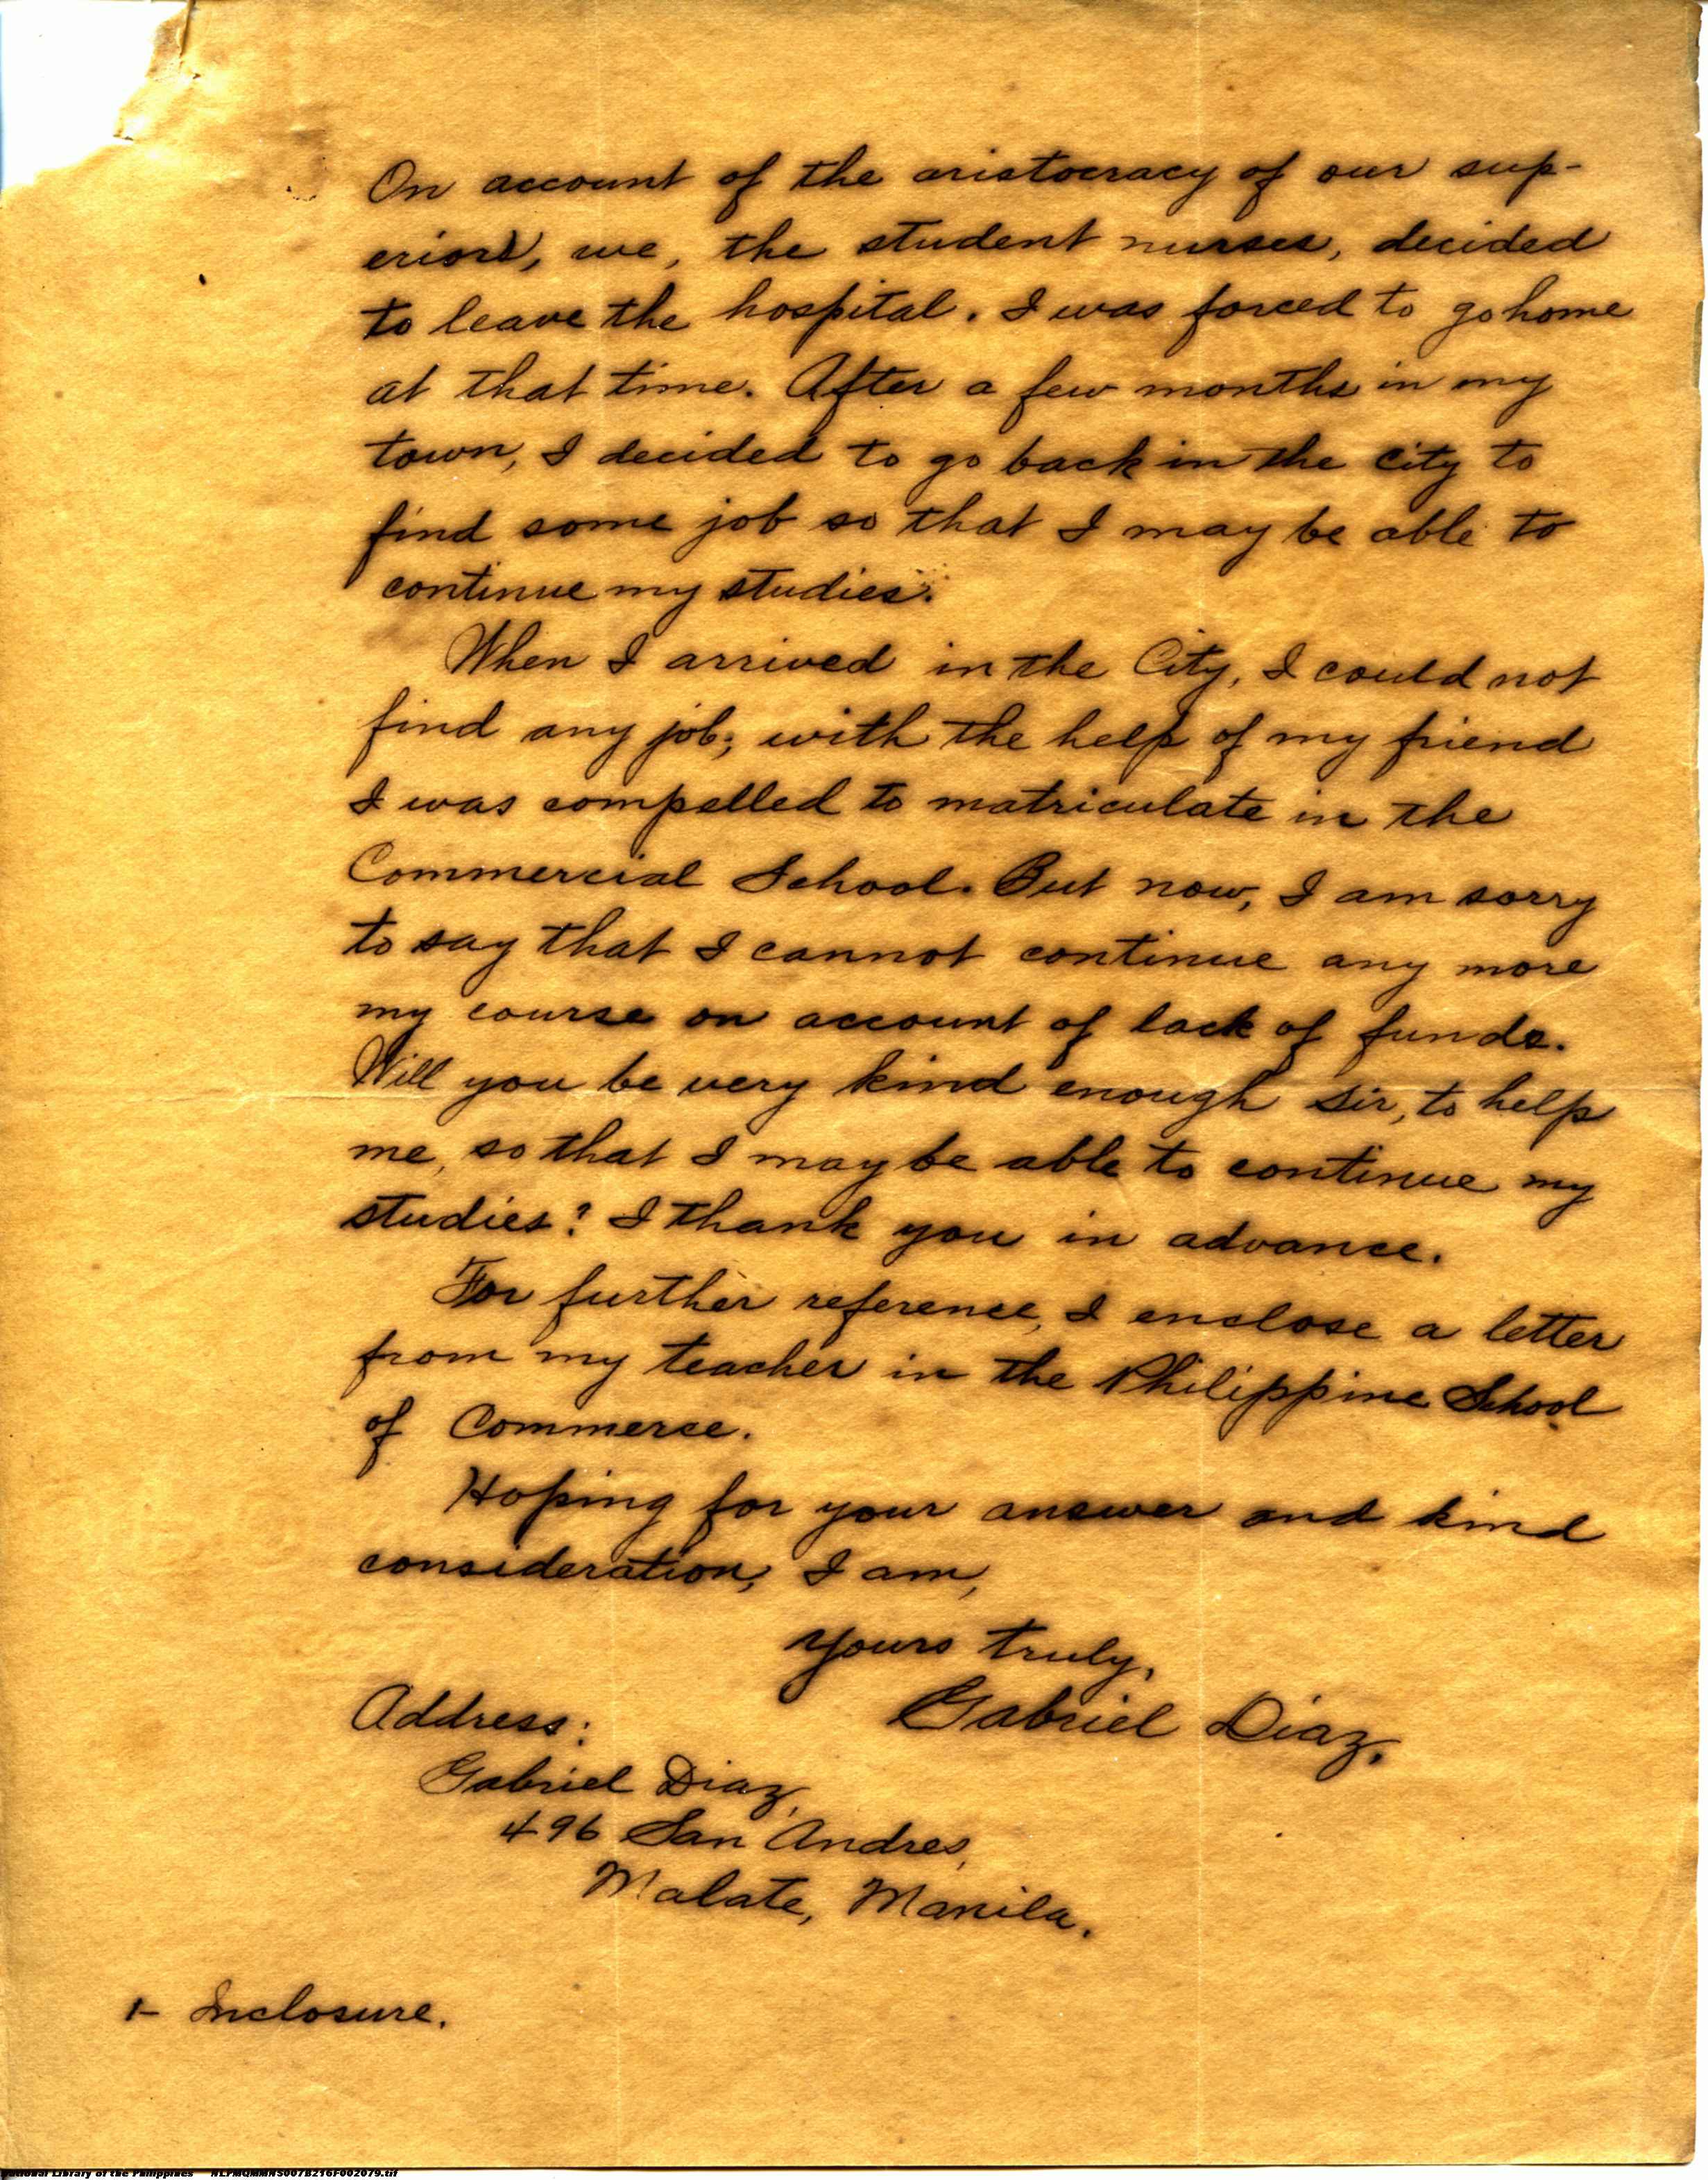 On account of the aristocracy of our sup-
eriors, we, the student nurses, decided
to leave the hospital. I was forced to go home
at that time. After a few months in my
town, I decided to go back in the city to
find some job so that I may be able to
continue my studies.
When I arrived in the City, I could not
find any job; with the help of my friend
I was compelled to matriculate in the
Commercial School. But now, I am sorry
to say that I cannot continue any more
my course on account of lack of funds.
Will you be very kind enough sir, to help
me, so that I may be able to continue my
studies? I thank you in advance.
For further reference, I enclose a letter
from my teacher in the Philippine School
of Commerce.
Hoping for your answer and kind
consideration, I am,
Yours truly,
Gabriel Diaz.
Address:
Gabriel Diaz,
496 San Andres,
Malate, Manila.
1- Inclosure.
National Library of the Philippines NLPMQMMNS007B216F002079.tif